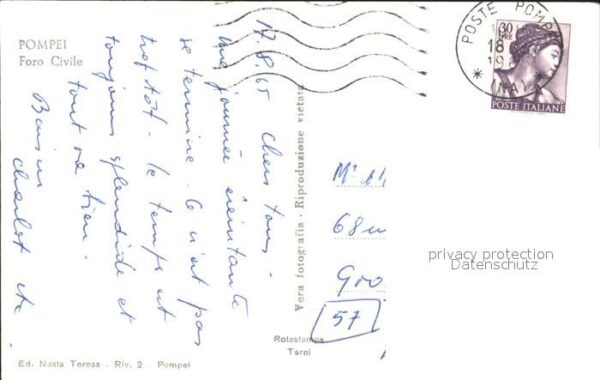 POMPEI
Foro Civile
17.8.65 Chers tous.
Une journée éreintante
se termine. Ce n'est pas
trop tôt. Le temps est
toujours splendide et
tout va bien.
Baisers
Vera fotografia - Riproduzione vietata
POSTE POMPEI
18
(NA)
30
LIRE
POSTE ITALIANE
Mr
68
57
privacy protection
Datenschutz
Rotastampa
Terni
Ed. Nasta Teresa - Riv. 2 Pompei